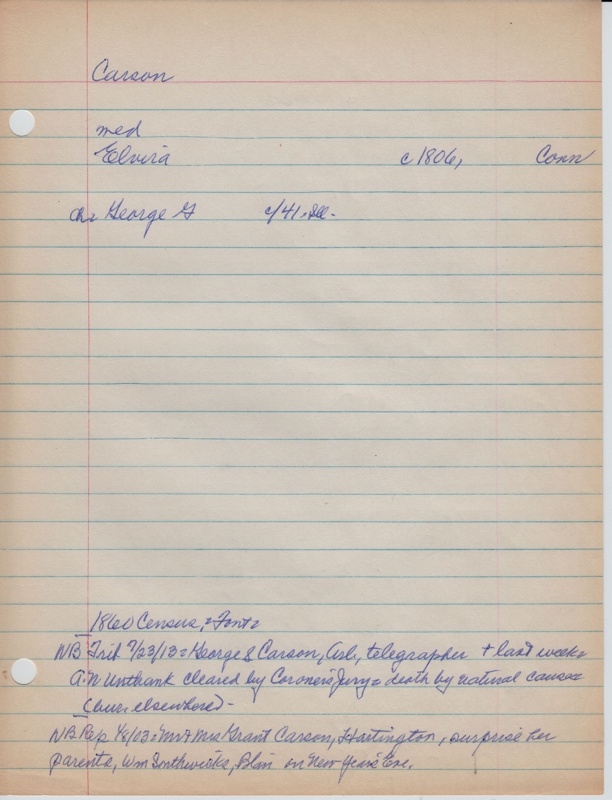 Carson
med
Elvira c1806, Conn
ch= George G c/41, Ill-
1860 Census, = Font=
NB Trib 7/23/13= George G Carson, Arl, telegrapher + last week=
A.N. Unthank cleared by Coroner's Jury= death by natural cause=
(bur. elsewhere)-
NB Rep 1/8/03= Mr + Mrs Grant Carson, Hartington, surprise her
parents, Wm Southwicks, Blair on New Years Eve.